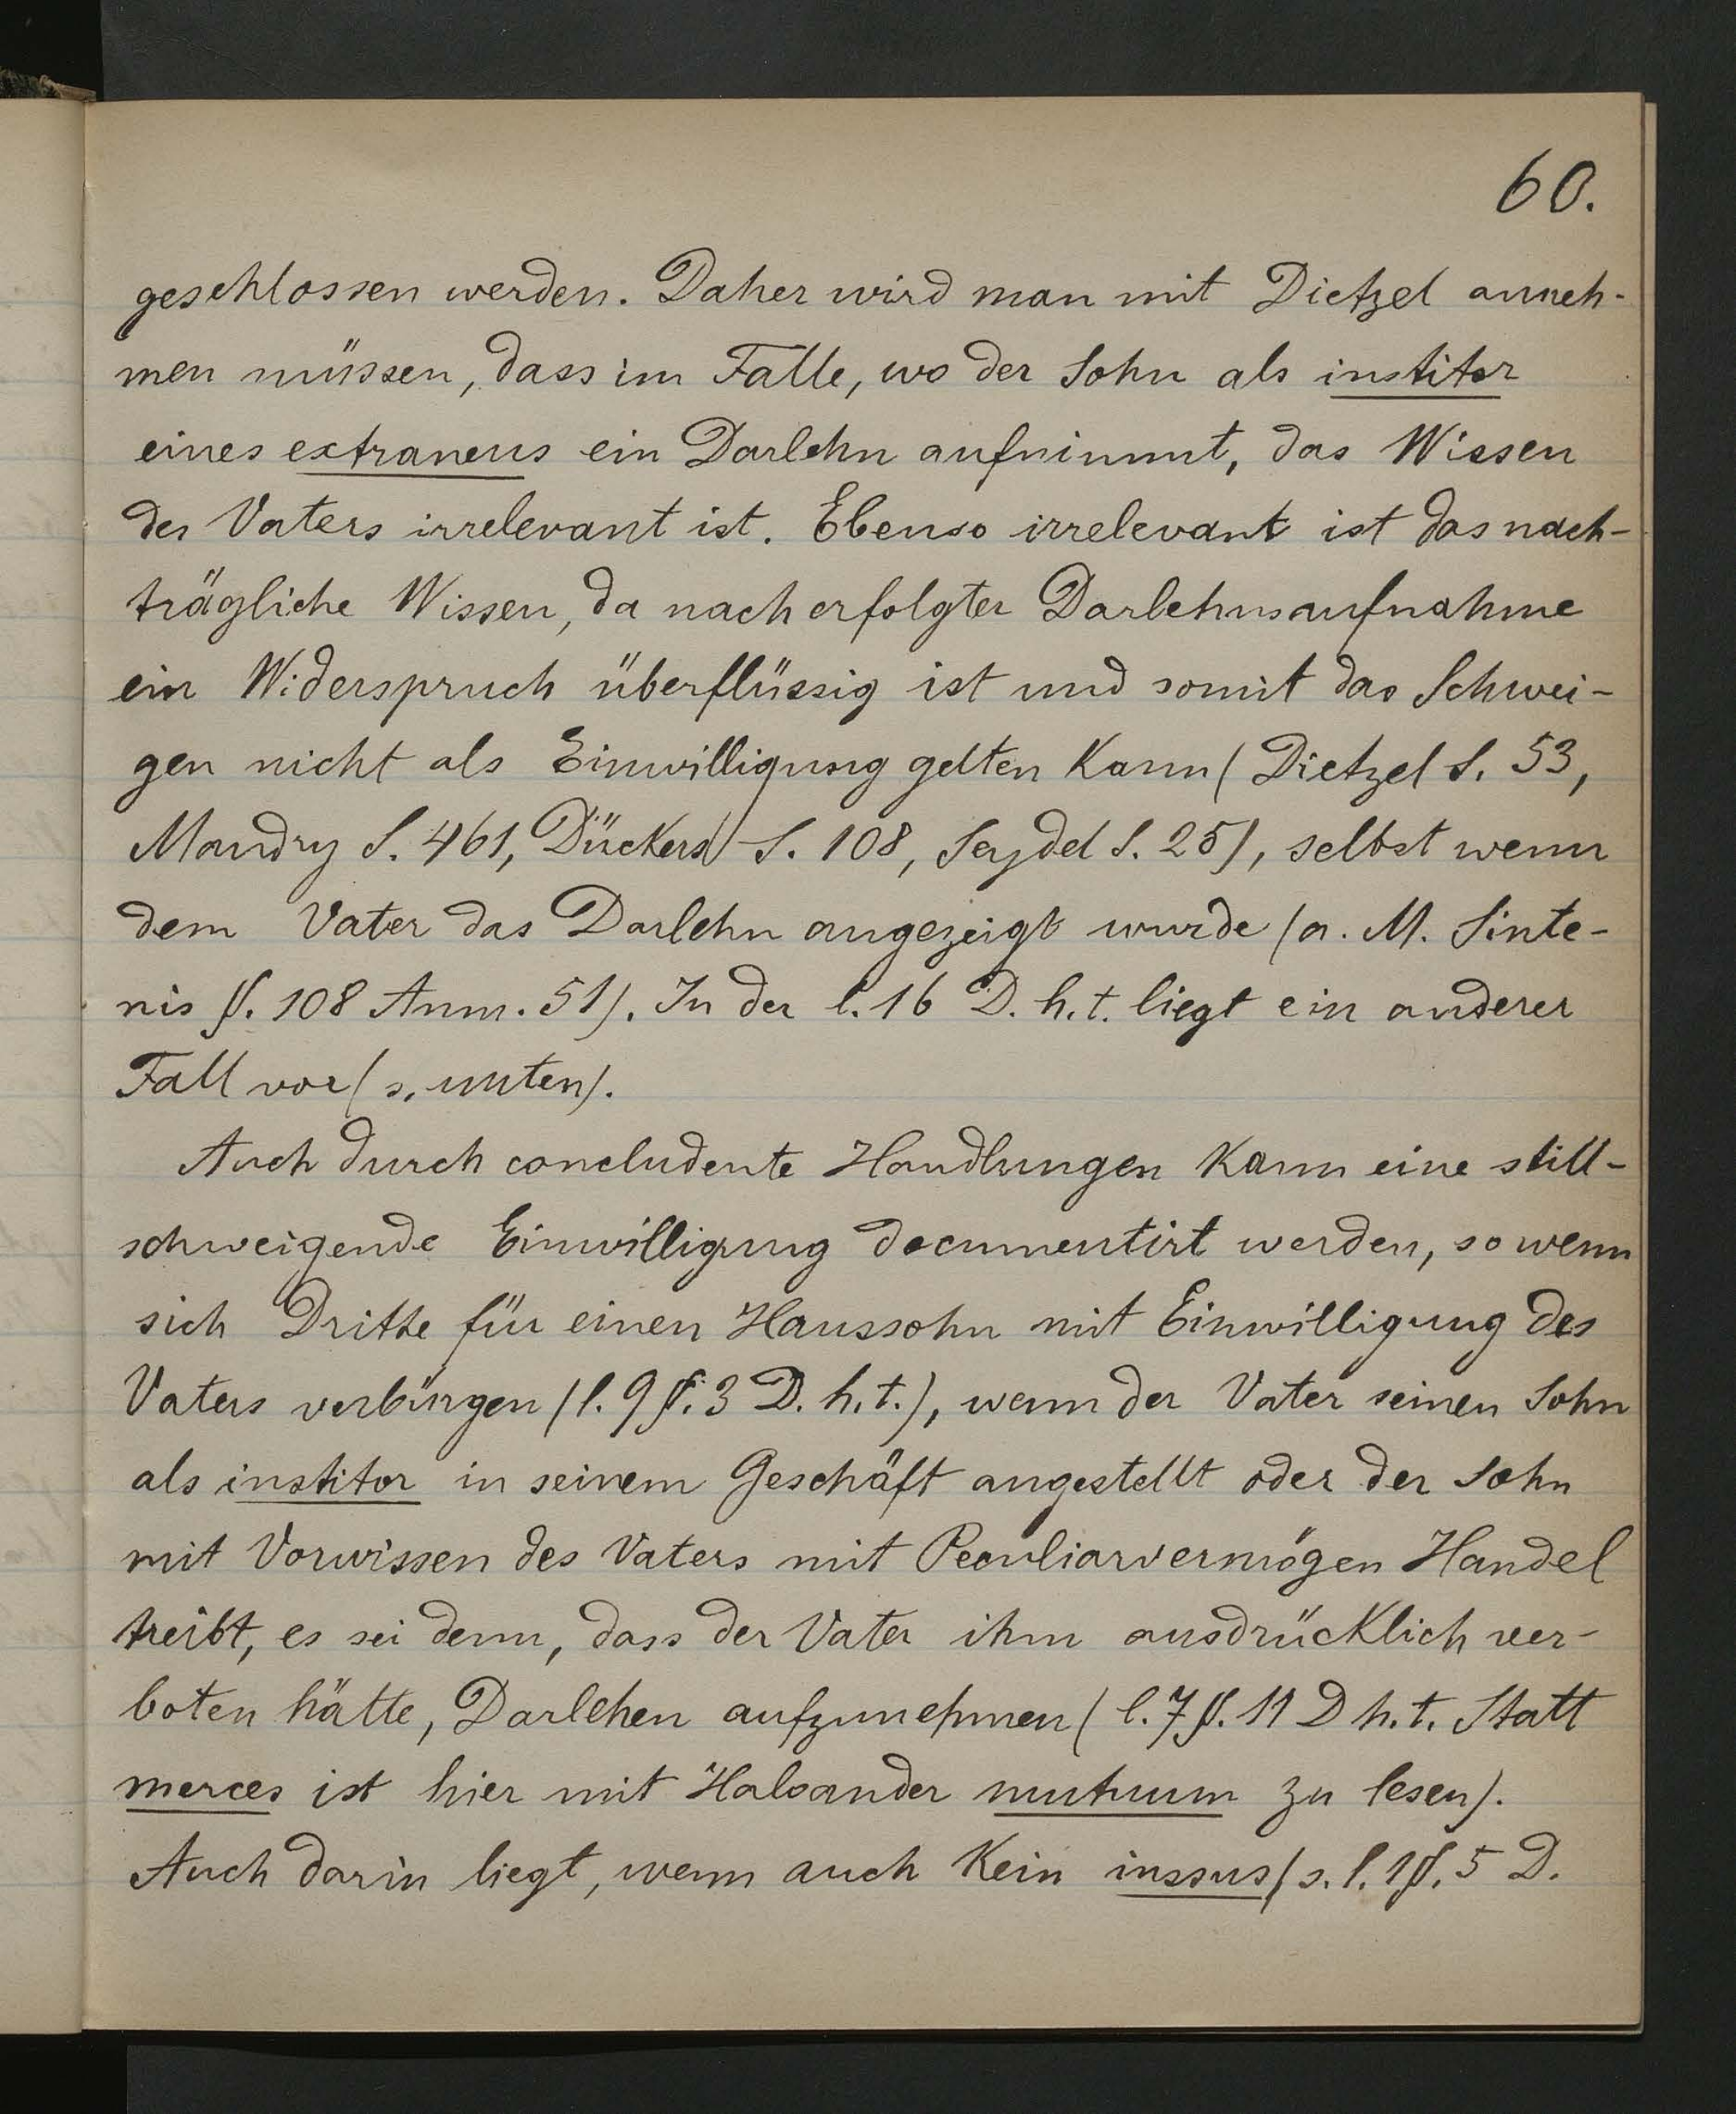 60.
geschlossen werden. Daher wird man mit Dietzel anneh-
men müssen, dass im Falle, wo der Sohn als institor
eines extraneus ein Darlehn aufnimmt, das Wissen
des Vaters irrelevant ist. Ebenso irrelevant ist das nach-
trägliche Wissen, da nach erfolgter Darlehnsaufnahme
ein Widerspruch überflüssig ist und somit das Schwei-
gen nicht als Einwilligung gelten kann (Dietzel S. 53,
Mandry S. 461, Dückers S. 108, Seydel S. 25), selbst wenn
dem Vater das Darlehn angezeigt wurde (a. M. Sinte-
nis §. 108 Anm. 51). In der l. 16 D. h. t. liegt ein anderer
Fall vor (s. unten).
Auch durch concludente Handlungen kann eine still-
schweigende Einwilligung documentirt werden, so wenn
sich Dritte für einen Haussohn mit Einwilligung des
Vaters verbürgen (l. 9 §. 3 D. h. t.), wenn der Vater seinen Sohn
als institor in seinem Geschäft angestellt oder der Sohn
mit Vorwissen des Vaters mit Peculiarvermögen Handel
treibt, es sei denn, dass der Vater ihm ausdrücklich ver-
boten hätte, Darlehen aufzunehmen (l. 7 §. 11 D h. t. Statt
merces ist hier mit Haloander mutuum zu lesen).
Auch darin liegt, wenn auch kein iussus (s. l. 1 §. 5 D.